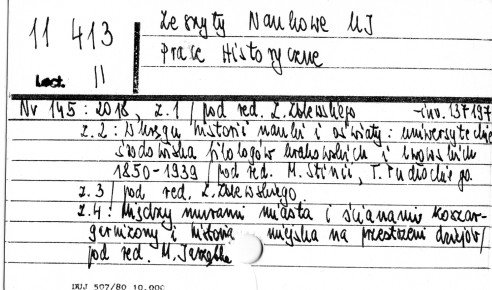 11 413
II
Lect.
Zeszyty Naukowe UJ
Prace Historyczne
Nr 145 : 2018, z. 1 / pod red. Z. Zblewskiego - inw. 137197
z. 2 : W kręgu historii nauki i oświaty : uniwersyteckie
środowiska filologów krakowskich i lwowskich
1850-1939 / pod red. M. Stinii, T. Pudłockiego
z. 3 / pod red. Z. Zblewskiego
z. 4 : Między murami miasta i ścianami koszar-
garnizony i historia miejska na przestrzeni dziejów /
pod red. M. Jarząbka
DUJ 507/80 10.000